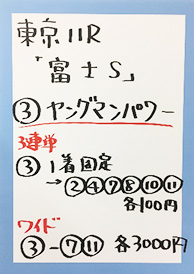 東京11R
「富士S」
③ヤングマンパワー
3連単
③1着固定
→②④⑦⑧⑩⑪
各100円
ワイド
③-⑦⑪ 各3000円